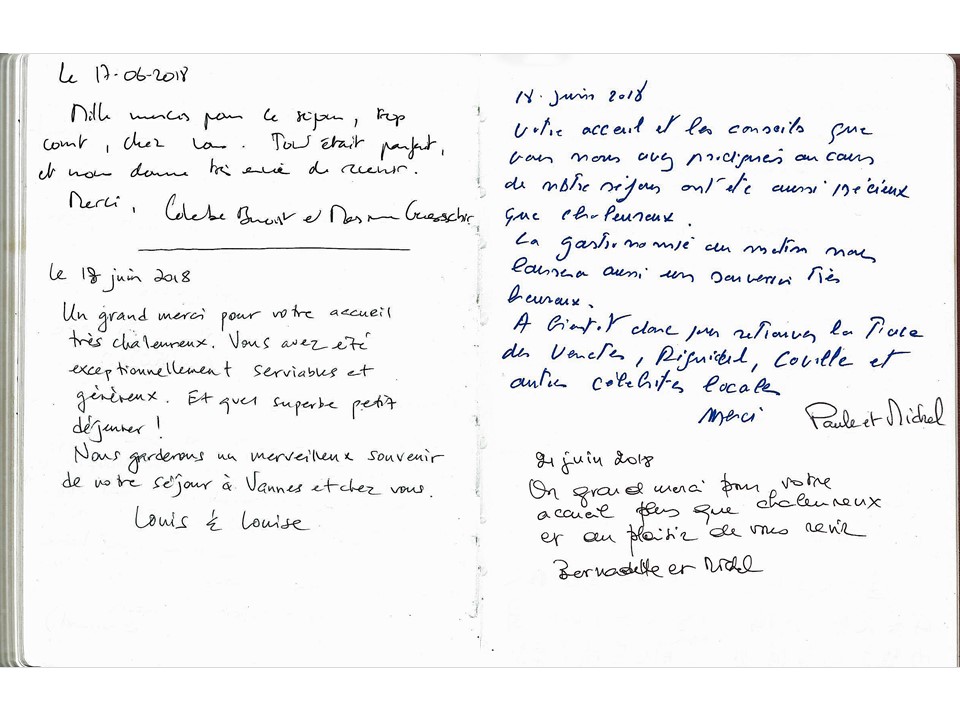 Le 17-06-2018
Mille mercis pour ce séjour, trop
court, chez vous. Tout était parfait,
et nous donne très envie de revenir.
Merci, et
Le 18 juin 2018
Un grand merci pour votre accueil
très chaleureux. Vous avez été
exceptionnellement serviables et
généreux. Et quel superbe petit
déjeuner !
Nous garderons un merveilleux souvenir
de votre séjour à Vannes et chez vous.
Louis & Louise
18. juin 2018
Votre acceuil et les conseils que
vous nous avez prodigués au cours
de notre séjour ont été aussi précieux
que chaleureux.
La gastronomie du matin nous
laissera aussi un souvenir très
heureux.
A bientôt donc pour retrouver la Trace
des Venètes, Riguidel, Coville et
autres célébrités locales
Merci Paule et Michel
21 juin 2018
Un grand merci pour votre
accueil plus que chaleureux
et au plaisir de vous revir
Bernadette et Michel